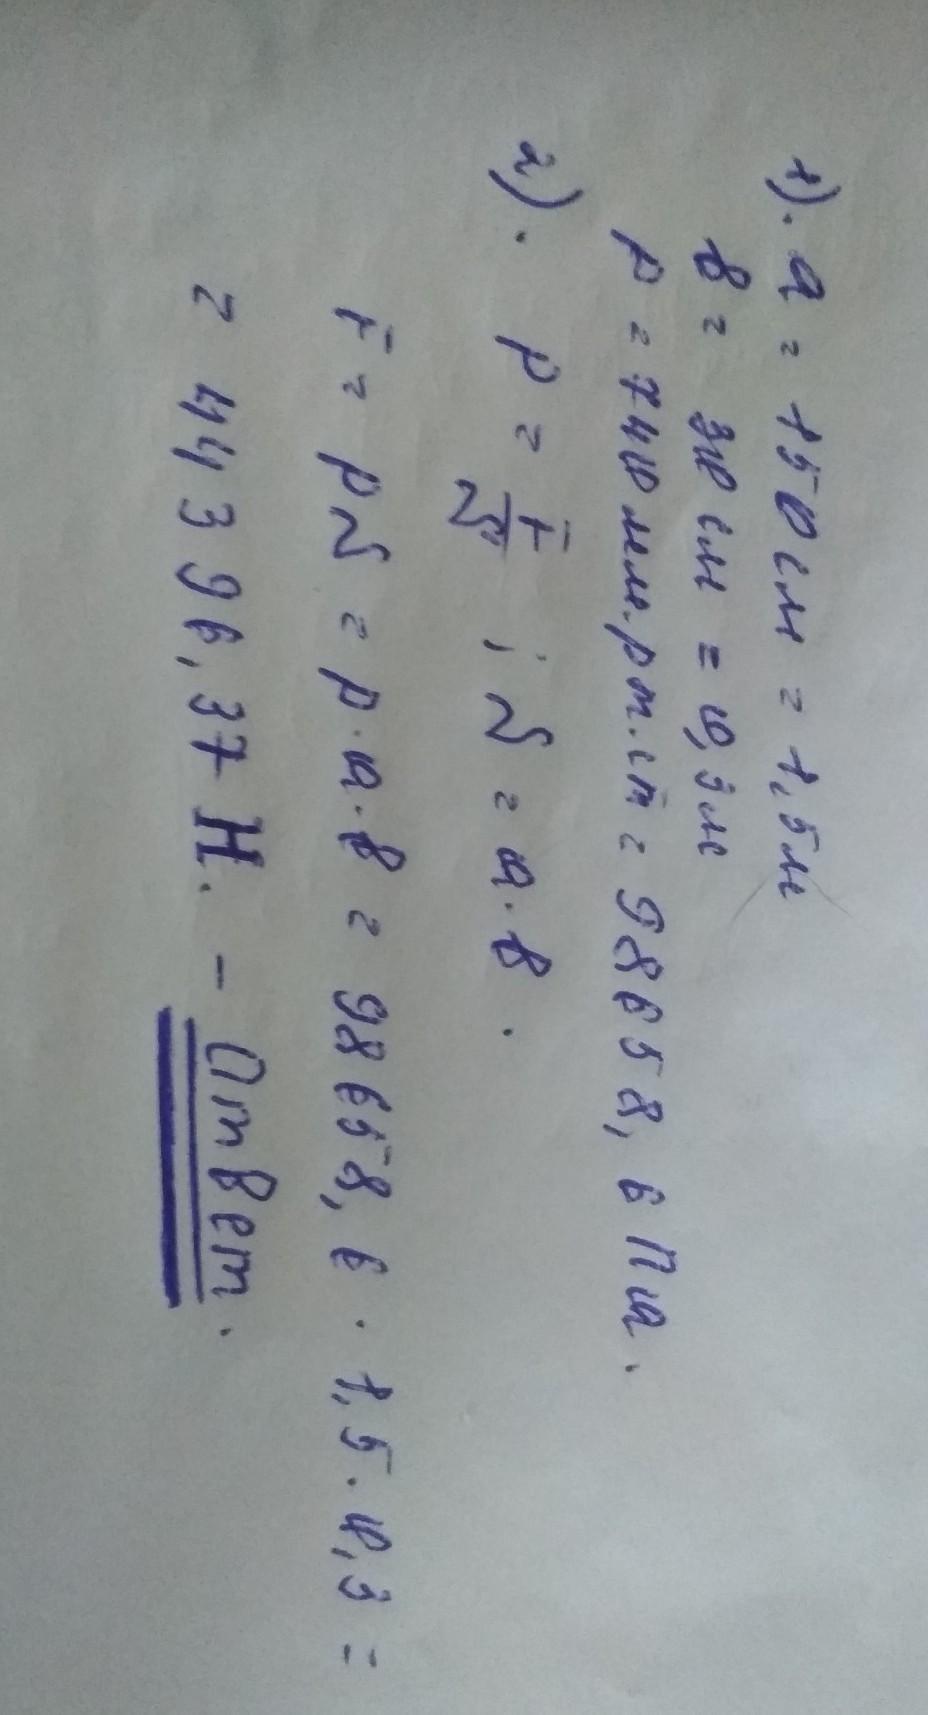 1). a = 150 см = 1,5 м
в = 30 см = 0,3 м
p = 740 мм.рт.ст = 98658,6 Па.
2). p = F/S ; S = а·в.
F = pS = p·а·в = 98658,6 · 1,5·0,3 =
= 44396,37 Н. – Ответ.